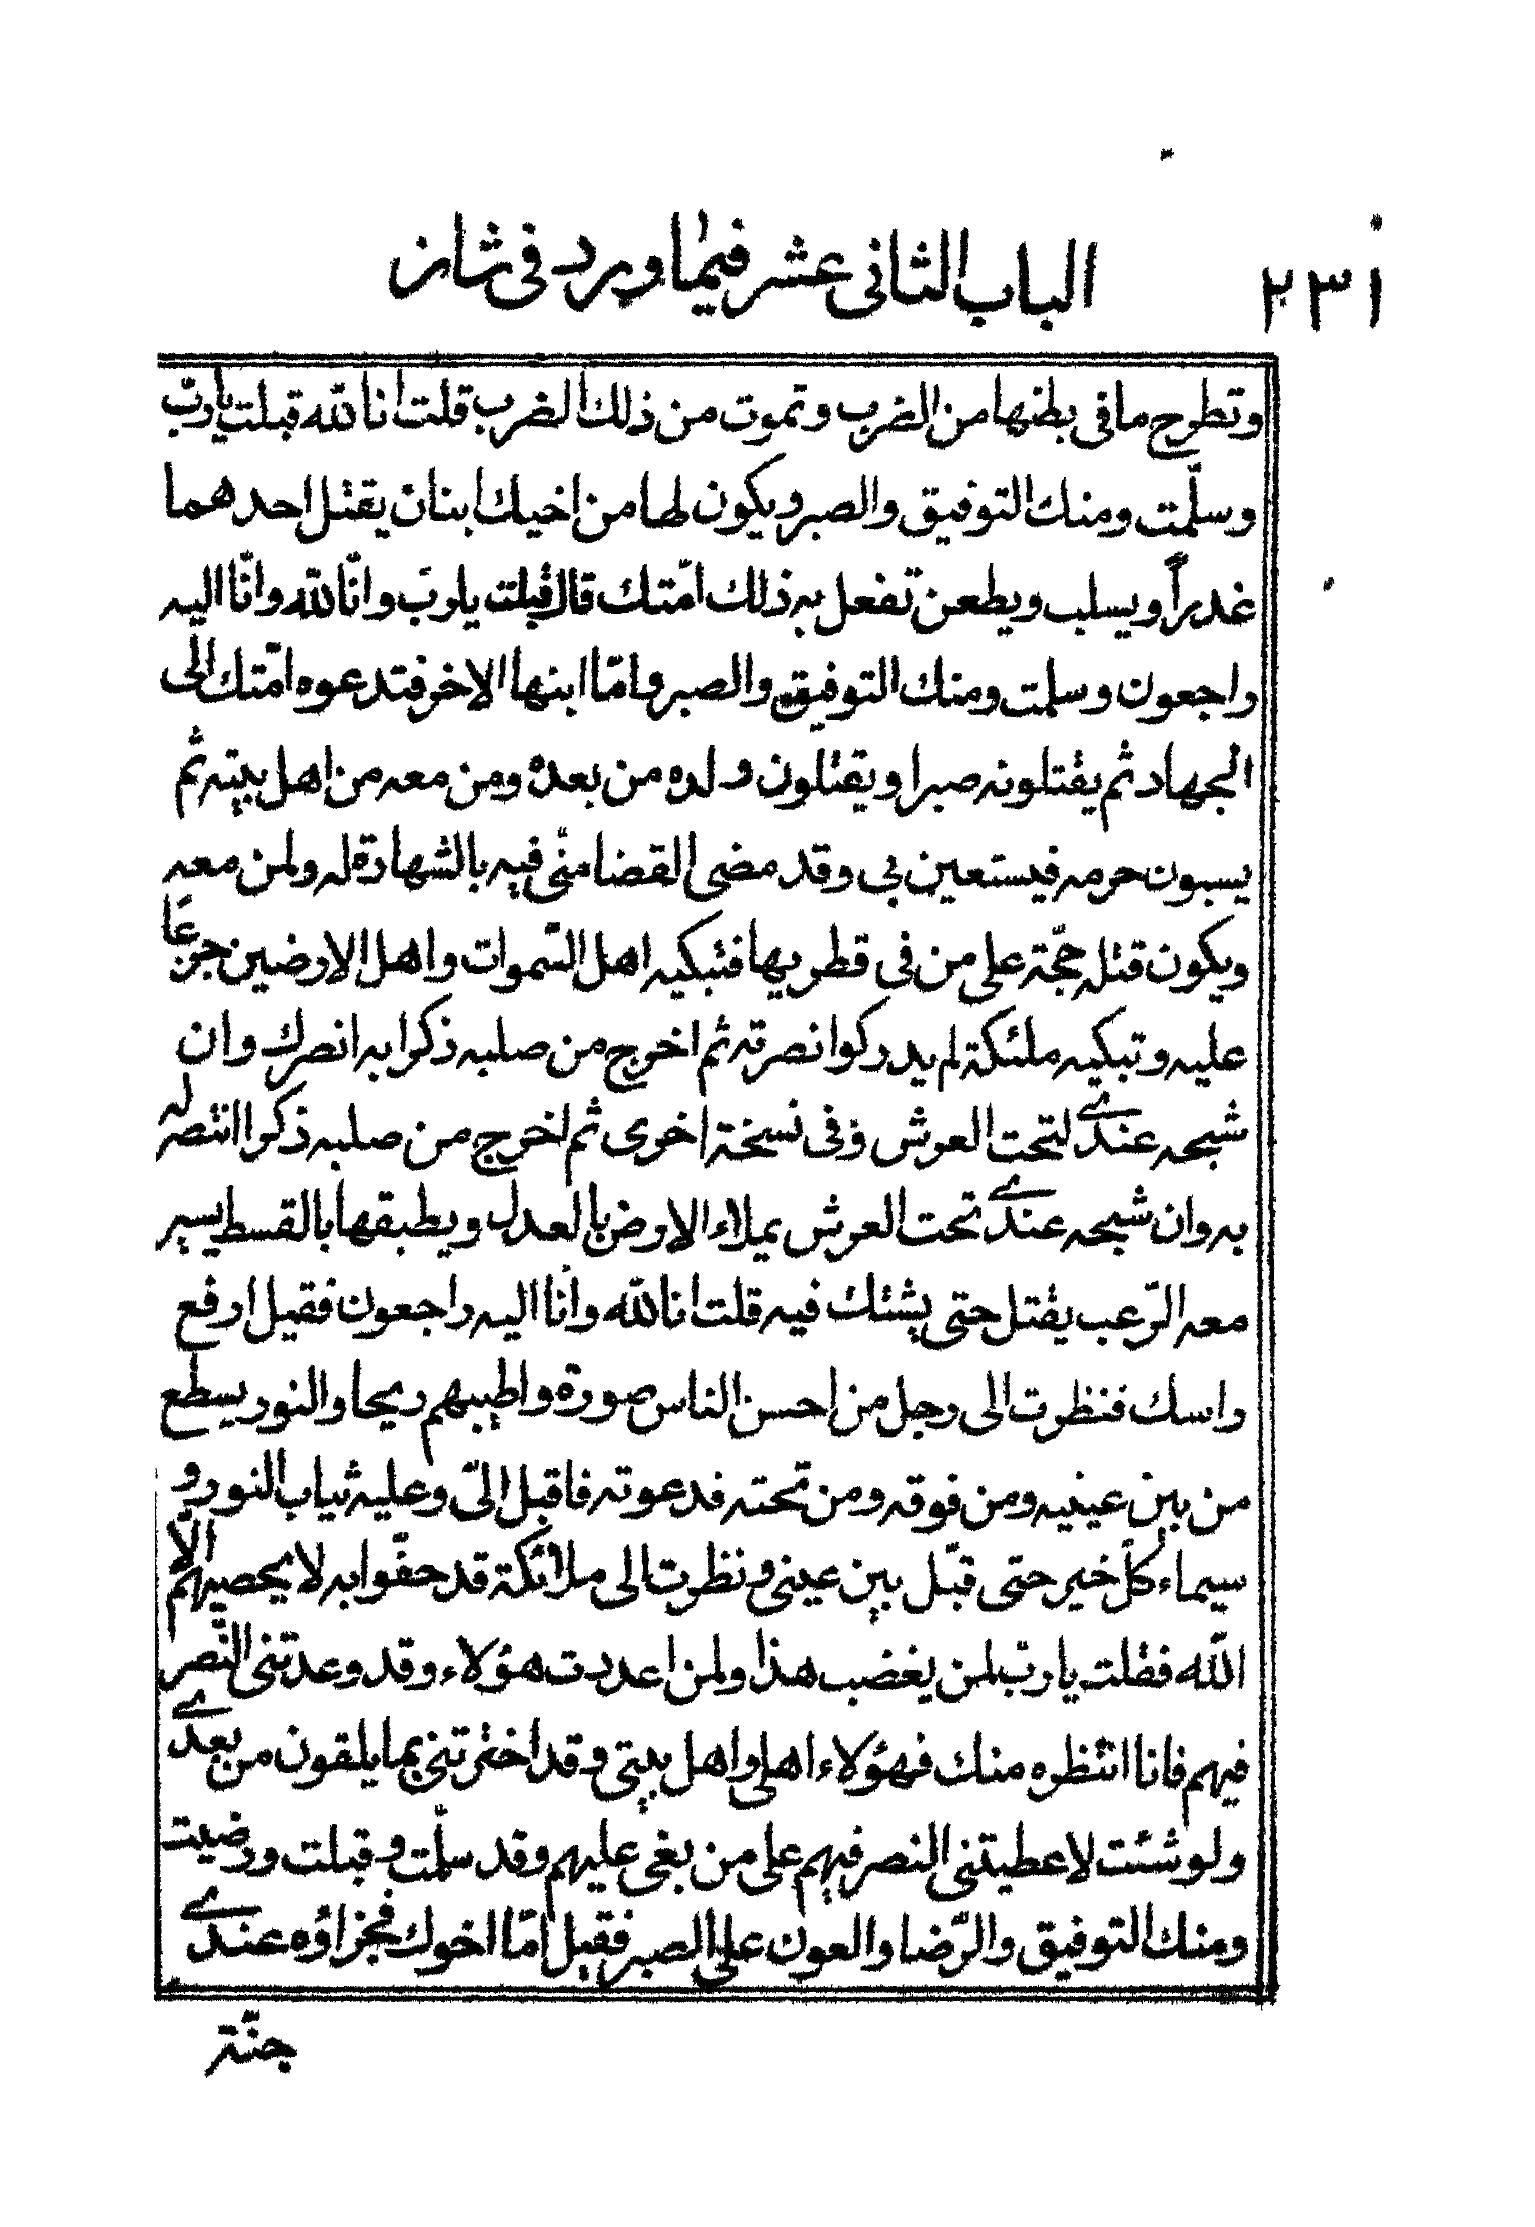 ٢٣١ الباب الثانى عشر فيما ورد فى شان
وتطرح ما فى بطنها من الضرب وتموت من ذلك الضرب قلت انا للّه قبلت يا ربّ
وسلّمت ومنك التوفيق والصبر ويكون لها من اخيك ابنان يقتل احدهما
غدراً ويسلب ويطعن تفعل به ذلك امّتك قال قبلت يا ربّ وانّا للّه وانّا اليه
راجعون وسلمت ومنك التوفيق والصبر وامّا ابنها الاخر فتدعوه امّتك الى
الجهاد ثم يقتلونه صبرا ويقتلون ولده من بعده ومن معه من اهل بيته ثم
يسبون حرمه فيستعين بى وقد مضى القضا منّى فيه بالشهادة له ولمن معه
ويكون قتله حجّة على من فى قطريها فتبكيه اهل السّموات واهل الارضين جزعًا
عليه وتبكيه ملئكة لم يدركوا نصرته ثم اخرج من صلبه ذكرا به انصرك وان
شبحه عندى لتحت العرش وفى نسخة اخرى ثم اخرج من صلبه ذكرا انتصر له
به وان شبحه عندى تحت العرش يملاء الارض بالعدل ويطبقها بالقسط يسير
معه الرّعب يقتل حتى يشئك فيه قلت انا للّه وانّا اليه راجعون فقيل ارفع
راسك فنظرت الى رجل من احسن الناس صورة واطيبهم ريحا والنور يسطع
من بين عينيه ومن فوقه ومن تحته فدعوته فاقبل الىّ وعليه ثياب النور و
سيماء كلّ خير حتى قبّل بين عينى ونظرت الى ملائكة قد حفّوا به لا يحصيهم الا
اللّه فقلت يا ربّ لمن يغضب هذا ولمن اعددت هؤلاء وقد وعدتنى النّصر
فيهم فانا انتظره منك فهؤلاء اهلى واهل بيتى وقد اخترتنى بما يلقون من بعدى
ولو شئت لاعطيتنى النصر فيهم على من بغى عليهم وقد سلّمت وقبلت ورضيت
ومنك التوفيق والرّضا والعون على الصبر فقيل امّا اخوك فجزاؤه عندى
جنّة